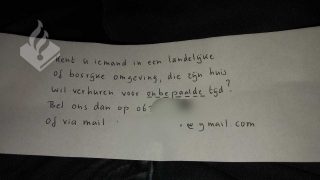 Kent u iemand in een landelijke
of bosrijke omgeving, die zijn huis
wil verhuren voor onbepaalde tijd?
Bel ons dan op 06
of via mail @gmail.com